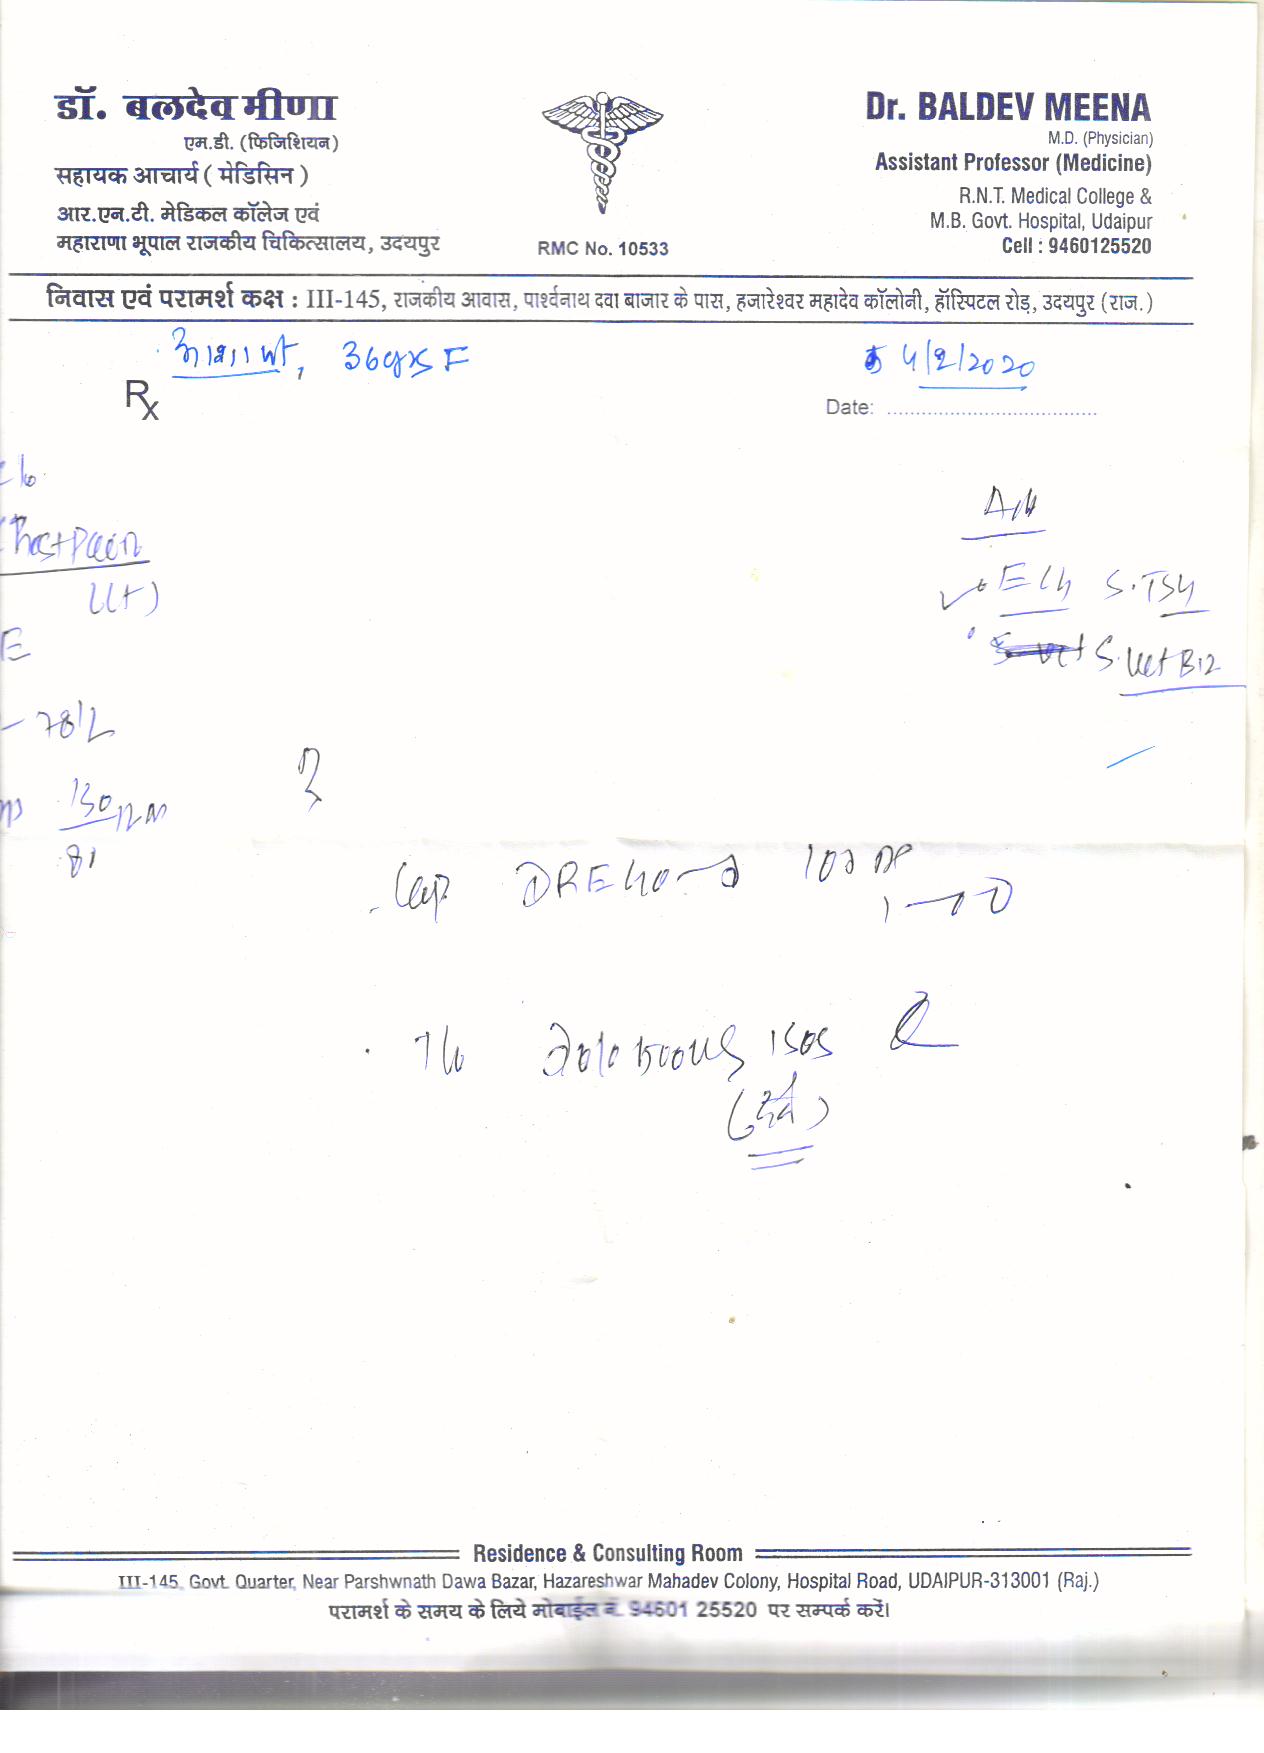 डॉ. बलदेव मीणा
एम.डी. (फिजिशियन)
सहायक आचार्य ( मेडिसिन )
आर.एन.टी. मेडिकल कॉलेज एवं
महाराणा भूपाल राजकीय चिकित्सालय, उदयपुर
RMC No. 10533
Dr. BALDEV MEENA
M.D. (Physician)
Assistant Professor (Medicine)
R.N.T. Medical College &
M.B. Govt. Hospital, Udaipur
Cell : 9460125520
निवास एवं परामर्श कक्ष : III-145, राजकीय आवास, पार्श्वनाथ दवा बाजार के पास, हजारेश्वर महादेव कॉलोनी, हॉस्पिटल रोड़, उदयपुर (राज.)
36yrs F
4/2/2020
Rx
Date: ......................................
Chest Pain
E
S. TSH
S. Vit B12
78/
130
81
Cap
Residence & Consulting Room
III-145, Govt. Quarter, Near Parshwnath Dawa Bazar, Hazareshwar Mahadev Colony, Hospital Road, UDAIPUR-313001 (Raj.)
परामर्श के समय के लिये मोबाईल नं. 94601 25520 पर सम्पर्क करें।